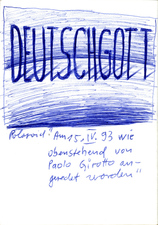 DEUTSCHGOTT
Polaroid "Am 15. IV. 93 wie
obenstehend von
Paolo Girotto an-
geredet worden"